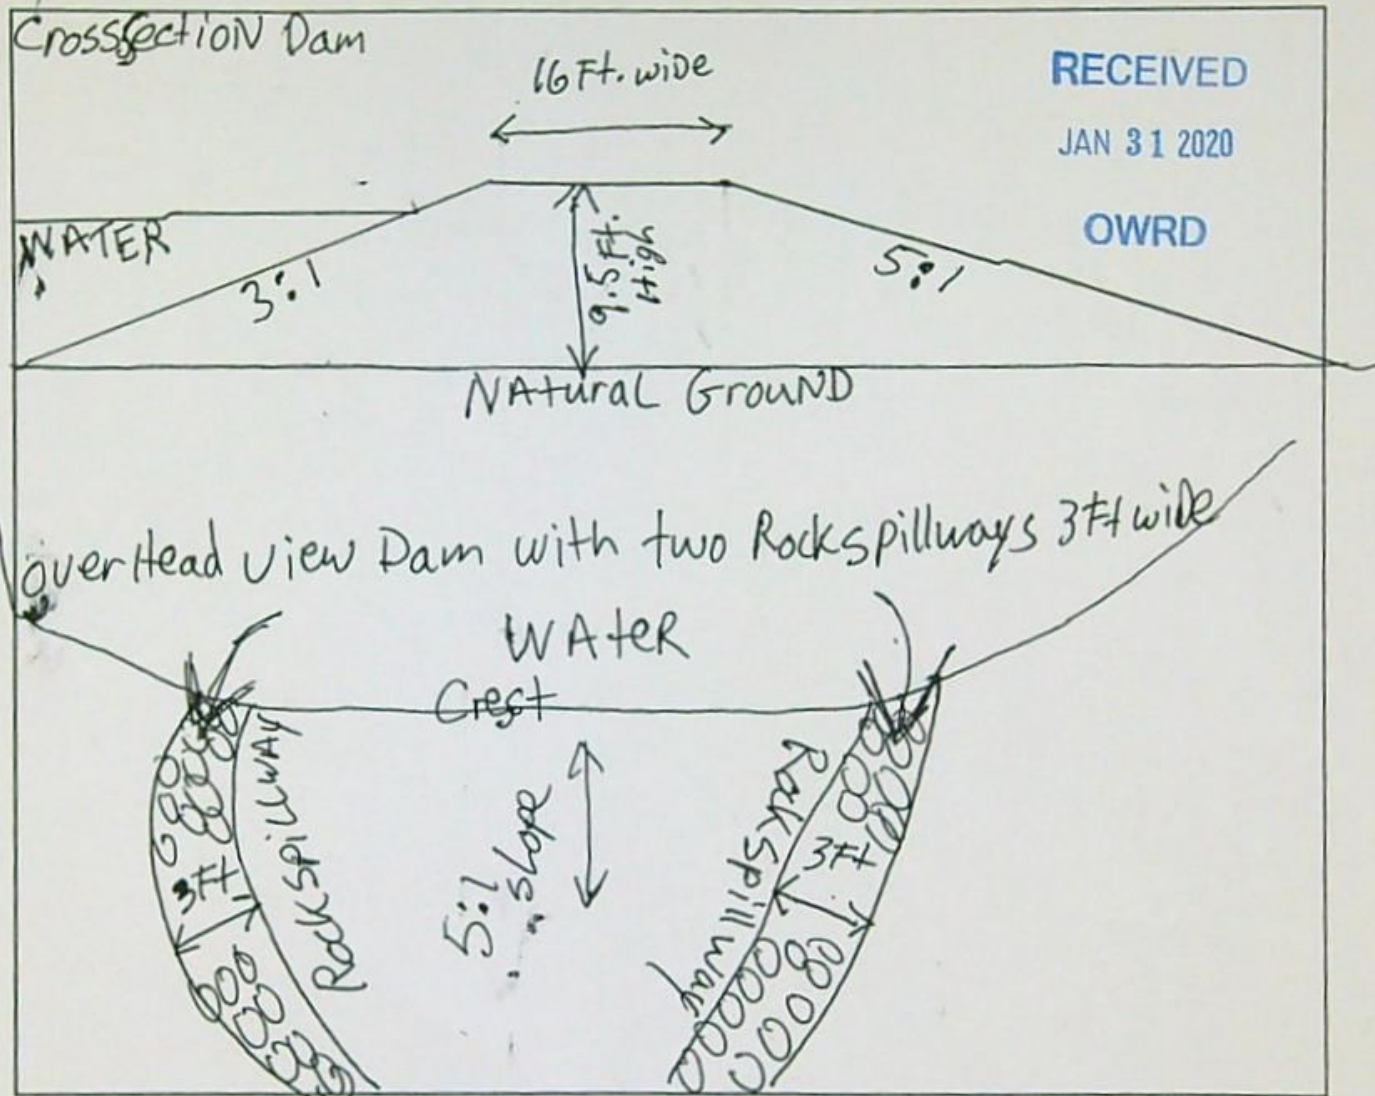 CrossSection Dam
16 Ft. wide
RECEIVED
JAN 31 2020
OWRD
WATER
3:1
9.5 Ft.
High
5:1
Natural Ground
overHead view Dam with two Rockspillways 3Ft wide
Water
Crest
Rockspillway
3Ft
5:1
slope
Rockspillway
3Ft